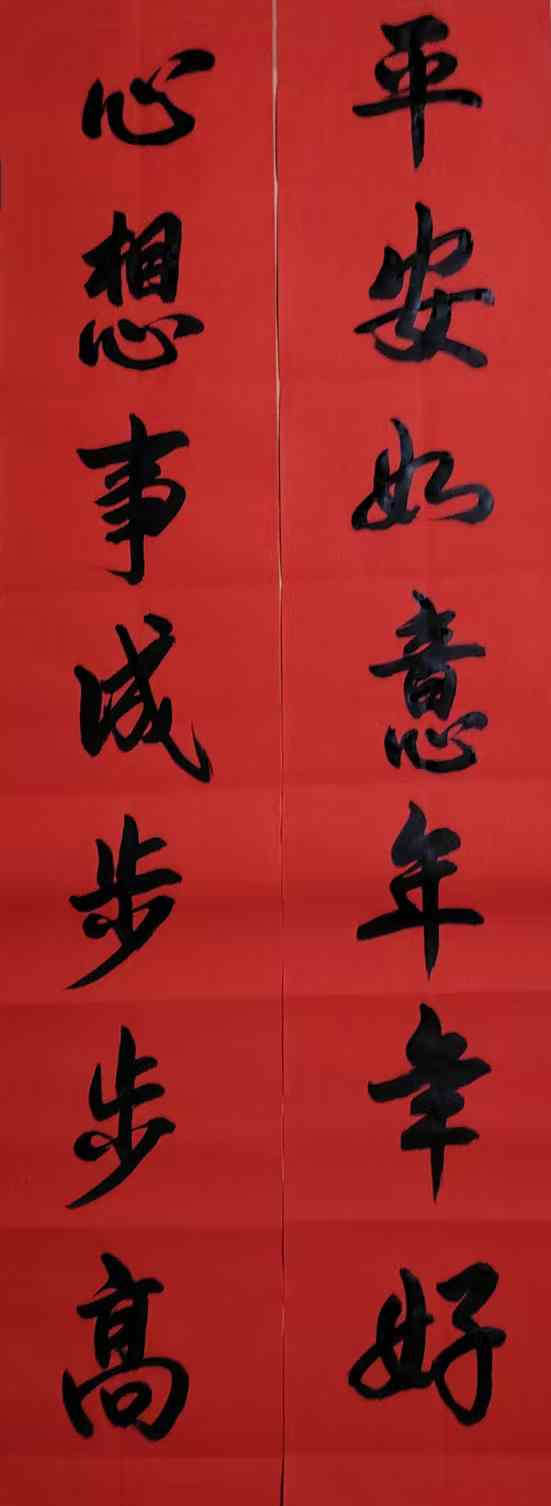 平安如意年年好
心想事成步步高